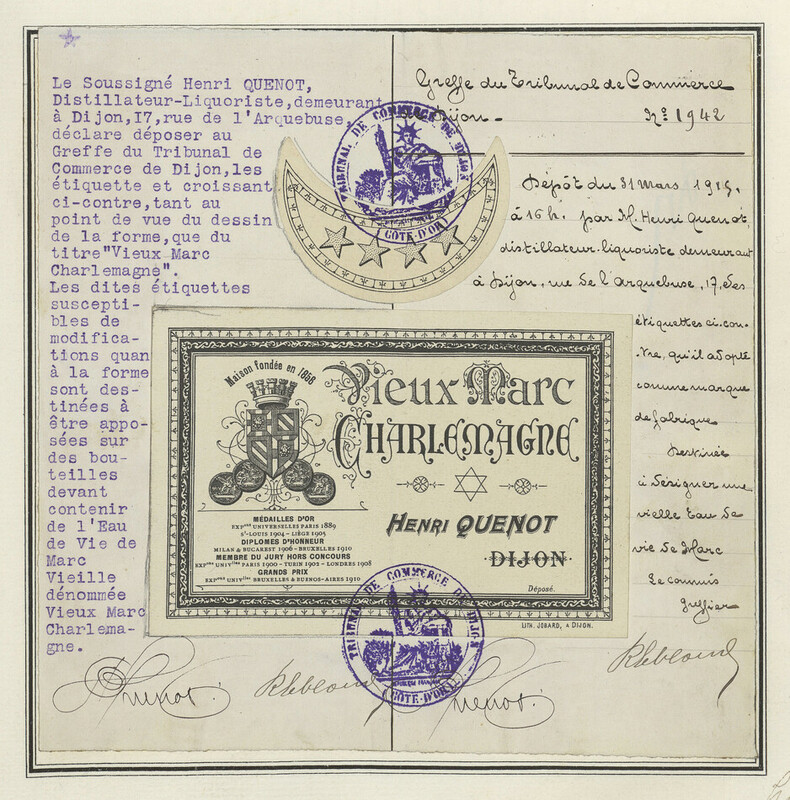 Le Soussigné Henri QUENOT,
Distillateur-Liquoriste,demeurant
à Dijon,17,rue de l'Arquebuse,
déclare déposer au
Greffe du Tribunal de
Commerce de Dijon,les
étiquette et croissant
ci-contre,tant au
point de vue du dessin
de la forme,que du
titre"Vieux Marc
Charlemagne".
Les dites étiquettes
suscepti-
bles de
modifica-
tions quan
à la forme
sont des-
tinées à
être appo-
sées sur
des bou-
teilles
devant
contenir
de l'Eau
de Vie de
Marc
Vieille
dénommée
Vieux Marc
Charlema-
gne.
TRIBUNAL DE COMMERCE DE DIJON
(CÔTE-D'OR)
Maison fondée en 1858
Vieux Marc
CHARLEMAGNE
HENRI QUENOT
DIJON
MÉDAILLES D'OR
EXPons UNIVERSELLES PARIS 1889
St-LOUIS 1904 - LIÉGE 1905
DIPLOMES D'HONNEUR
MILAN & BUCAREST 1906 - BRUXELLES 1910
MEMBRE DU JURY HORS CONCOURS
EXPons UNIVlles PARIS 1900 - TURIN 1902 - LONDRES 1908
GRANDS PRIX
EXPons UNIVlles BRUXELLES & BUENOS-AIRES 1910
Déposé.
LITH. JOBARD, A DIJON.
Greffe du Tribunal de Commerce
Dijon-
No 1942
Dépôt du 31 Mars
à 16h. par M. Henri Quenot,
distillateur-liquoriste demeurant
à Dijon, rue de l'arquebuse, 17, des
étiquettes ci-con-
-tre, qu'il adopte
comme marque
de fabrique
Destinée
à désigner une
vieille Eau de
vie de Marc
Le commis
greffier
TRIBUNAL DE COMMERCE DE DIJON
(CÔTE-D'OR)
Quenot
Quenot